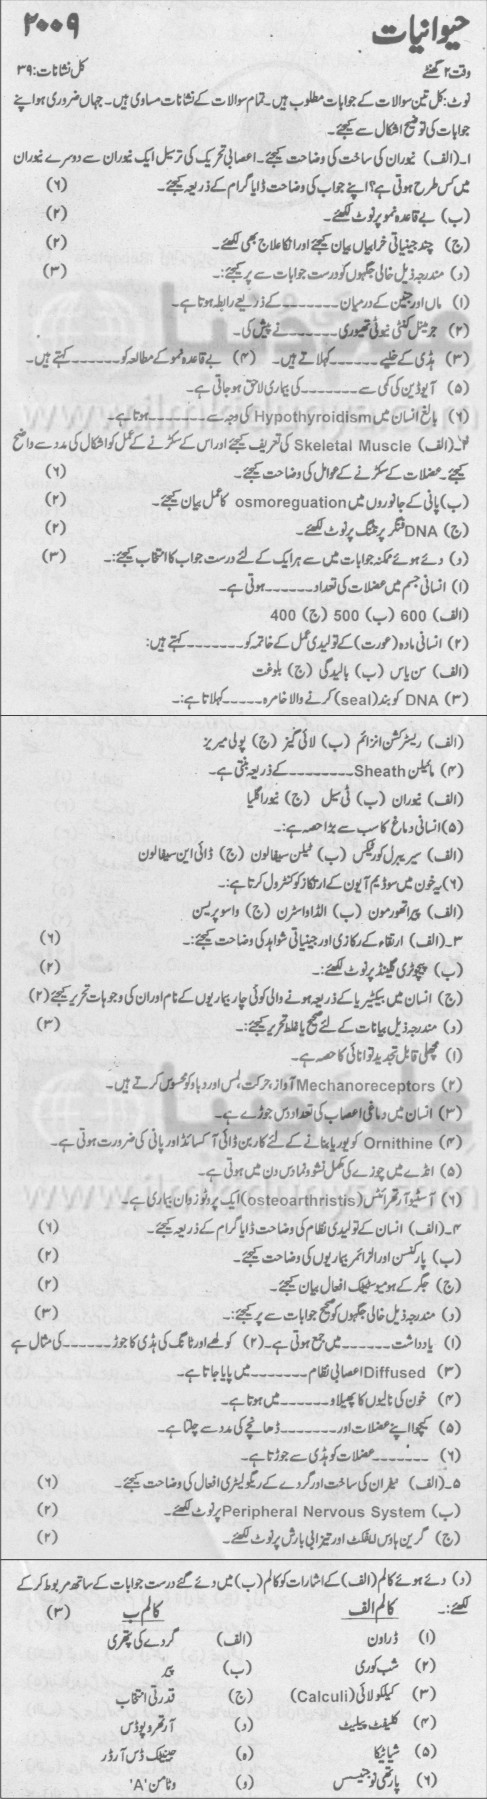 حیوانیات
۲۰۰۹
وقت ۲ گھنٹے
کل نشانات: ۳۹
نوٹ: کل تین سوالات کے جوابات مطلوب ہیں۔ تمام سوالات کے نشانات مساوی ہیں۔ جہاں ضروری ہو اپنے
جوابات کی توضیح اشکال سے کیجئے۔
۱۔(الف) نیوران کی ساخت کی وضاحت کیجئے۔ اعصابی تحریک کی ترسیل ایک نیوران سے دوسرے نیوران
میں کس طرح ہوتی ہے؟ اپنے جواب کی وضاحت ڈایاگرام کے ذریعہ کیجئے۔ (۶)
(ب) بے قاعدہ نمو پر نوٹ لکھئے۔ (۲)
(ج) چند جینیاتی خرابیاں بیان کیجئے اور انکا علاج بھی لکھئے۔ (۲)
(د) مندرجہ ذیل خالی جگہوں کو درست جوابات سے پر کیجئے:۔ (۳)
(۱) ماں اور جنین کے درمیان۔۔۔۔۔۔۔کے ذریعے رابطہ ہوتا ہے۔
(۲) جرمینل کنٹی نیوٹی تھیوری۔۔۔۔۔۔نے پیش کی۔
(۳) ہڈی کے خلیے۔۔۔۔۔۔کہلاتے ہیں۔ (۴) بے قاعدہ نمو کے مطالعہ کو۔۔۔۔۔۔کہتے ہیں۔
(۵) آیوڈین کی کمی سے۔۔۔۔۔۔۔کی بیماری لاحق ہوجاتی ہے۔
(۶) بالغ انسان میں Hypothyroidism کی وجہ سے۔۔۔۔۔۔ہوتا ہے۔
۲۔(الف) Skeletal Muscle کی تعریف کیجئے اور اس کے سکڑنے کے عمل کو اشکال کی مدد سے واضح
کیجئے۔ عضلات کے سکڑنے کے عوامل کی وضاحت کیجئے۔ (۶)
(ب) پانی کے جانوروں میں osmoreguation کا عمل بیان کیجئے۔ (۲)
(ج) DNA فنگر پرنٹنگ پر نوٹ لکھئے۔ (۲)
(د) دئے ہوئے ممکنہ جوابات میں سے ہر ایک کے لئے درست جواب کا انتخاب کیجئے:۔ (۳)
(۱) انسانی جسم میں عضلات کی تعداد۔۔۔۔۔۔ہوتی ہے۔
(الف) 600 (ب) 500 (ج) 400
(۲) انسانی مادہ (عورت) کے تولیدی عمل کے خاتمہ کو۔۔۔۔۔۔۔کہتے ہیں:
(الف) سن یاس (ب) بالیدگی (ج) بلوغت
(۳) DNA کو بند (seal) کرنے والا خامرہ۔۔۔۔۔کہلاتا ہے:۔
(الف) ریسٹرکشن انزائم (ب) لائی گیز (ج) پولی میریز
(۴) مائیلن Sheath۔۔۔۔۔۔۔کے ذریعہ بنتی ہے۔
(الف) نیوران (ب) ٹی سیل (ج) نیوراگلیا
(۵) انسانی دماغ کا سب سے بڑا حصہ ہے:۔
(الف) سیریبرل کورٹیکس (ب) ٹیلن سیفالون (ج) ڈائی این سیفالون
(۶) یہ خون میں سوڈیم آیون کے ارتکاز کو کنٹرول کرتا ہے:۔
(الف) پیراتھورمون (ب) الڈواسٹرن (ج) واسوپریسن
۳۔(الف) ارتقاء کے رکازی اور جینیاتی شواہد کی وضاحت کیجئے:۔ (۶)
(ب) پیچوٹری گلینڈ پر نوٹ لکھئے:۔ (۲)
(ج) انسان میں بیکٹیریا کے ذریعہ ہونے والی کوئی چار بیماریوں کے نام اور ان کی وجوہات تحریر کیجئے (۲)
(د) مندرجہ ذیل بیانات کے لئے صحیح یا غلط تحریر کیجئے:۔ (۳)
(۱) مچھلی قابل تجدید توانائی کا حصہ ہے۔
(۲) Mechanoreceptors آواز، حرکت، لمس اور دباؤ کو محسوس کرتے ہیں۔
(۳) انسان میں دماغی اعصاب کی تعداد دس جوڑے ہے۔
(۴) Ornithine کو یوریا بنانے کے لئے کاربن ڈائی آکسائڈ اور پانی کی ضرورت ہوتی ہے۔
(۵) انڈے میں چوزے کی مکمل نشوونما دس دن میں ہوتی ہے۔
(۶) آسٹیو آرتھرائٹس (osteoarthristis) ایک پروٹوزوان بیماری ہے۔
۴۔(الف) انسان کے تولیدی نظام کی وضاحت ڈایاگرام کے ذریعہ کیجئے۔ (۶)
(ب) پارکنسن اور الزائمر بیماریوں کی وضاحت کیجئے۔ (۲)
(ج) جگر کے ہومیوسٹیٹک افعال بیان کیجئے۔ (۲)
(د) مندرجہ ذیل خالی جگہوں کو صحیح جوابات سے پر کیجئے:۔ (۳)
(۱) یادداشت۔۔۔۔۔۔میں جمع ہوتی ہے۔ (۲) کولہے اور ٹانگ کی ہڈی کا جوڑ۔۔۔۔۔۔کی مثال ہے
(۳) Diffused اعصابی نظام۔۔۔۔۔۔۔میں پایا جاتا ہے۔
(۴) خون کی نالیوں کا پھیلاؤ۔۔۔۔۔۔میں ہوتا ہے۔
(۵) کیچوا اپنے عضلات اور۔۔۔۔۔۔۔ڈھانچے کی مدد سے چلتا ہے۔
(۶) ۔۔۔۔۔۔۔عضلات کو ہڈی سے جوڑتا ہے۔
۵۔(الف) نیفران کی ساخت اور گردے کے ریگولیٹری افعال کی وضاحت کیجئے۔ (۶)
(ب) Peripheral Nervous System پر نوٹ لکھئے۔ (۲)
(ج) گرین ہاؤس افیکٹ اور تیزابی بارش پر نوٹ لکھئے۔ (۲)
(د) دئے ہوئے کالم (الف) کے اشارات کو کالم (ب) میں دئے گئے درست جوابات کے ساتھ مربوط کرکے
لکھئے:۔ کالم الف کالم ب (۳)
(۱) ڈارون (الف) گردے کی پتھری
(۲) شب کوری (ب) پیر
(۳) کیلکولائی (Calculi) (ج) قدرتی انتخاب
(۴) کلیفٹ پیلیٹ (د) آرتھروپوڈس
(۵) شیاٹیکا (ہ) جینیٹک ڈس آرڈر
(۶) پارتھی نوجنیسس (و) وٹامن 'A'